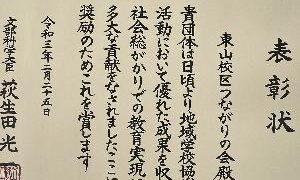 表彰状
東山校区つながりの会殿
貴団体は日頃より地域学校協
活動において優れた成果を収
社会総がかりでの教育実現に
多大な貢献をなされました、ここ
奨励のためこれを賞します
令和三年二月二十五日
文部科学大臣 萩生田光一